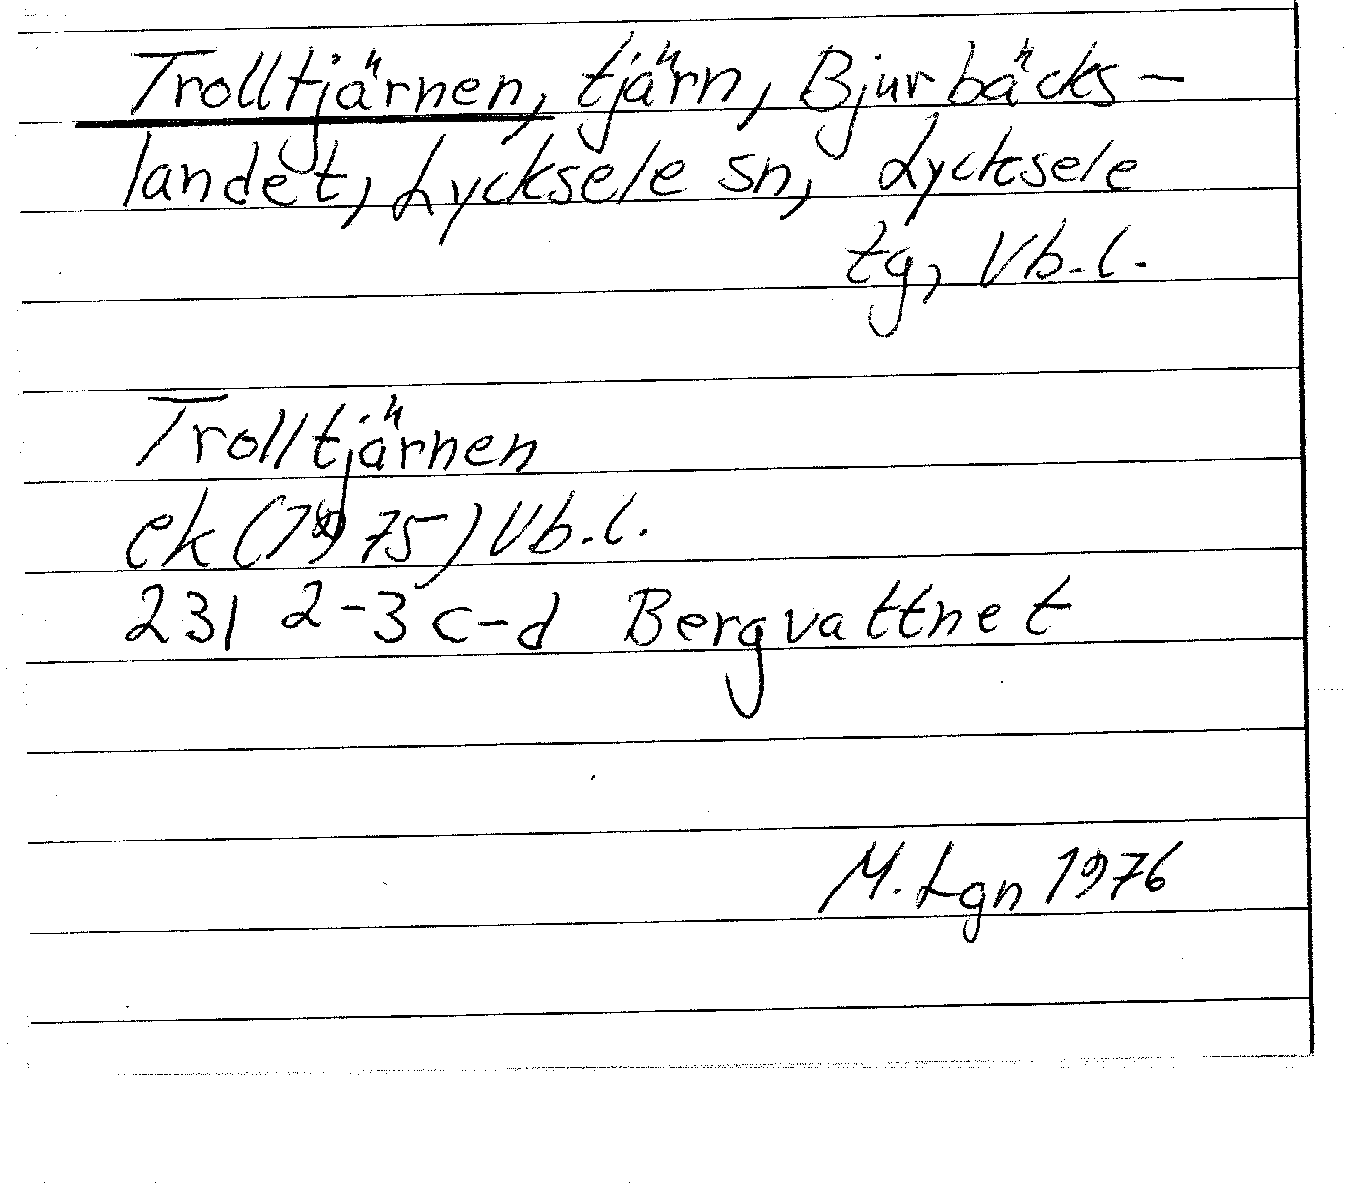 Trolltjärnen, tjärn, Bjurbäcks-
landet, Lycksele sn, Lycksele
tg, Vb.l.
Trolltjärnen
ek (1975) Vb.l.
23I 2-3 c-d Bergvattnet
M. Lgn 1976